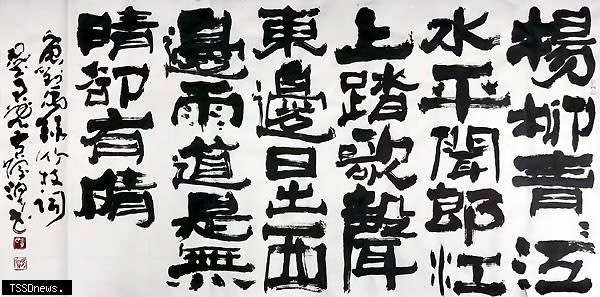 楊柳青〻江
水平聞郎江
上踏歌聲
東邊日出西
邊雨道是無
晴却有晴
唐劉禹錫竹枝詞
TSSDnews.